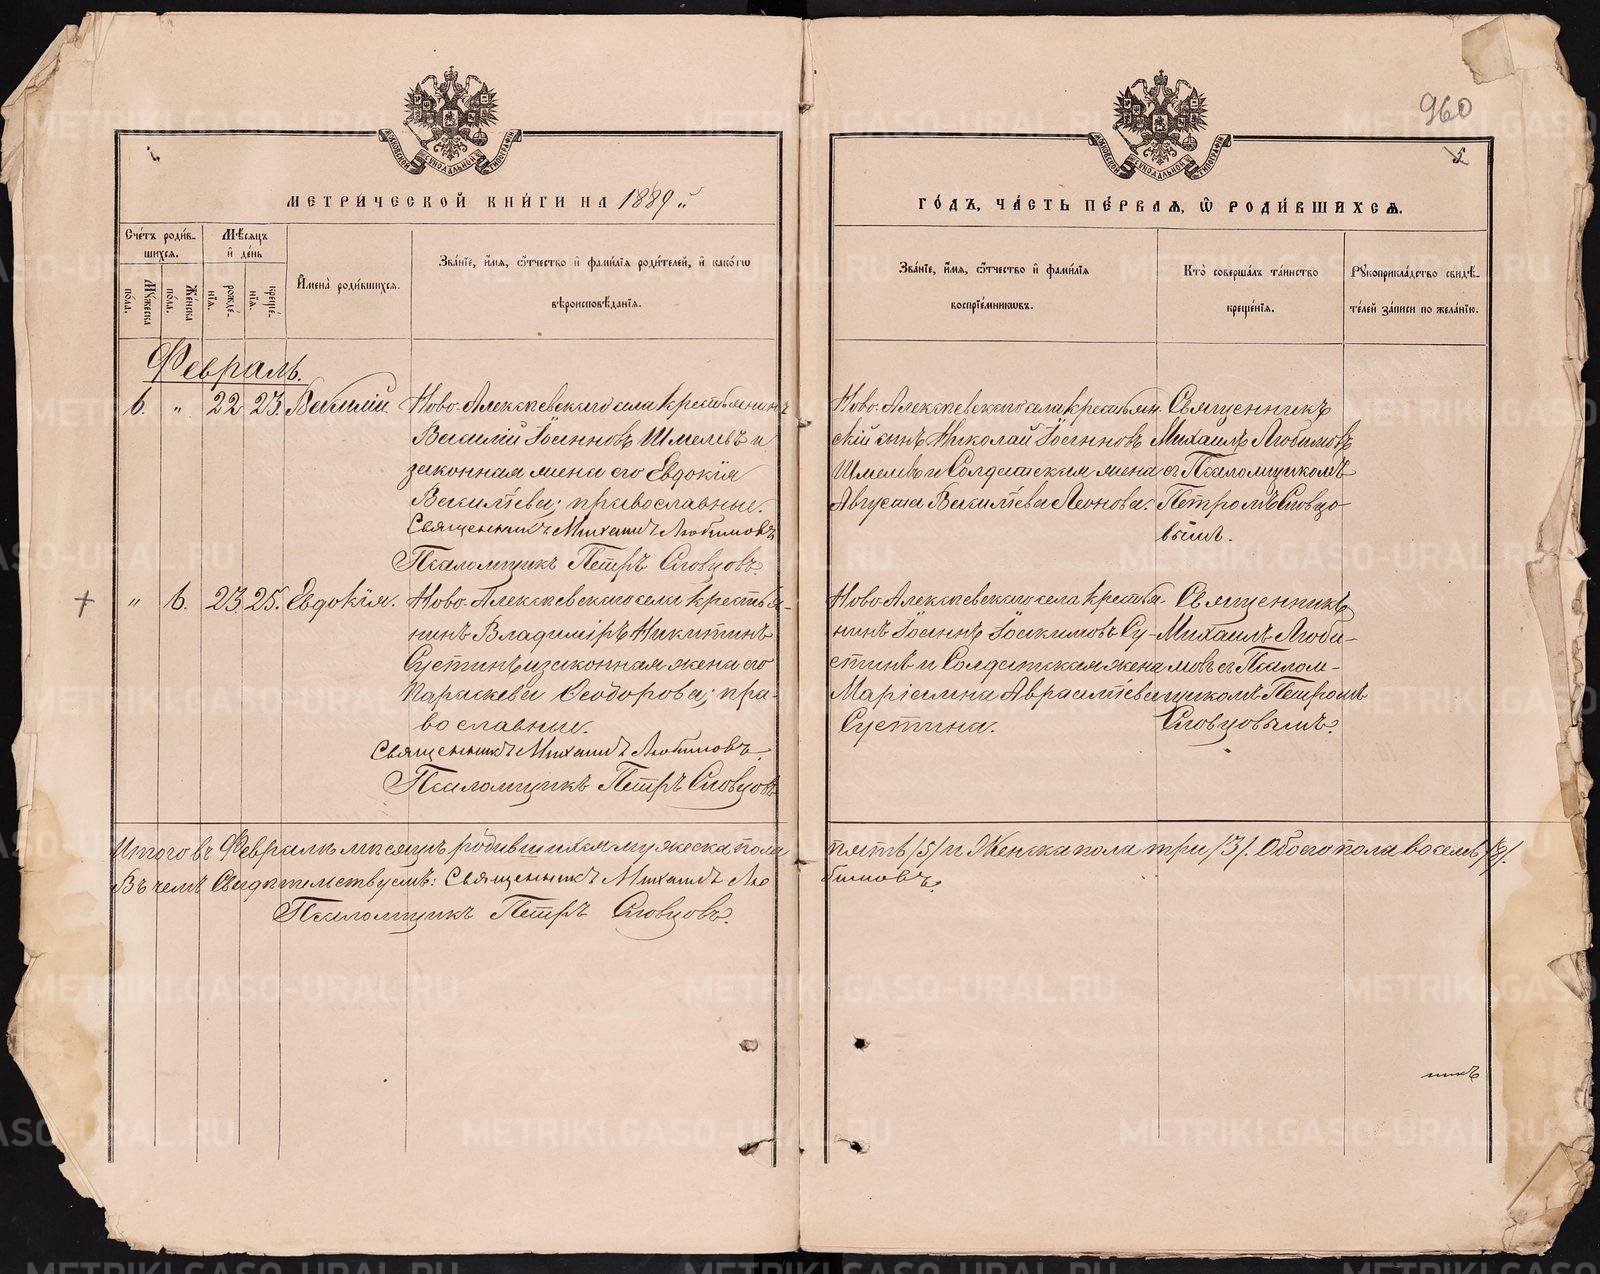 960
5
МОСКОВСКОЙ СѴНОДАЛЬНОЙ ТИПОГРАФІИ
МОСКОВСКОЙ СѴНОДАЛЬНОЙ ТИПОГРАФІИ
МЕТРИ́ЧЕСКОЙ КНИ́ГИ НА 1889й
ГО́ДЪ, ЧА́СТЬ ПЕ́РВАЯ, Ѡ РОДИ́ВШИХСЯ.
Сче́тъ роди́в-
шихся.
Мꙋ́жеска по́ла.
Же́нска по́ла.
Мѣ́сяцъ
и де́нь
рожде́-нїя.
креще́-нїя.
Имена̀ роди́вшихся.
Зва́нїе, и́мя, ѻ҆́тчество и фами́лїя роди́телей, и како́гѡ
вѣроисповѣ́данїя.
Зва́нїе, и́мя, ѻ҆́тчество и фами́лїя
воспрїе́мникѡвъ.
Кто̀ соверша́лъ та́инство
креще́нїя.
Рꙋкоприкла́дство свидѣ́-
телей за́писи по жела́нїю.
Февраль.
6. " 22 23. Василій.
Ново-Алексѣевскаго села крестьянинъ
Василій Іоанновъ Шмелевъ и
законная жена его Евдокія
Васильева; православные.
Священникъ Михаилъ Любимовъ
Псаломщикъ Петръ Словцовъ.
Ново-Алексѣевскаго села крестьян-
скій сынъ Николай Іоанновъ
Шмелевъ и Солдатская жена
Августа Васильева Леонова.
Священникъ
Михаилъ Любимовъ
съ Псаломщикомъ
Петромъ Словцо-
вымъ.
+ " 6. 23 25. Евдокія.
Ново-Алексѣевскаго села крестья-
нинъ Владиміръ Никитинъ
Сустинъ и законная жена его
Параскева Ѳеодорова; пра-
вославные.
Священникъ Михаилъ Любимовъ
Псаломщикъ Петръ Словцовъ
Ново-Алексѣевскаго села крестья-
нинъ Іоаннъ Іоакимовъ Су-
стинъ и Солдатская жена
Маріамна Аврамьева
Сустина.
Священникъ
Михаилъ Люби-
мовъ съ Псалом-
щикомъ Петромъ
Словцовымъ.
Итого въ Февралѣ мѣсяцѣ родившихся мужеска пола пять /5/ и Женска пола три /3/. Обоего пола восемь /8/.
Въ чемъ Свидѣтельствуемъ: Священникъ Михаилъ Любимовъ.
Псаломщикъ Петръ Словцовъ.
никъ
METRIKI.GASO-URAL.RU